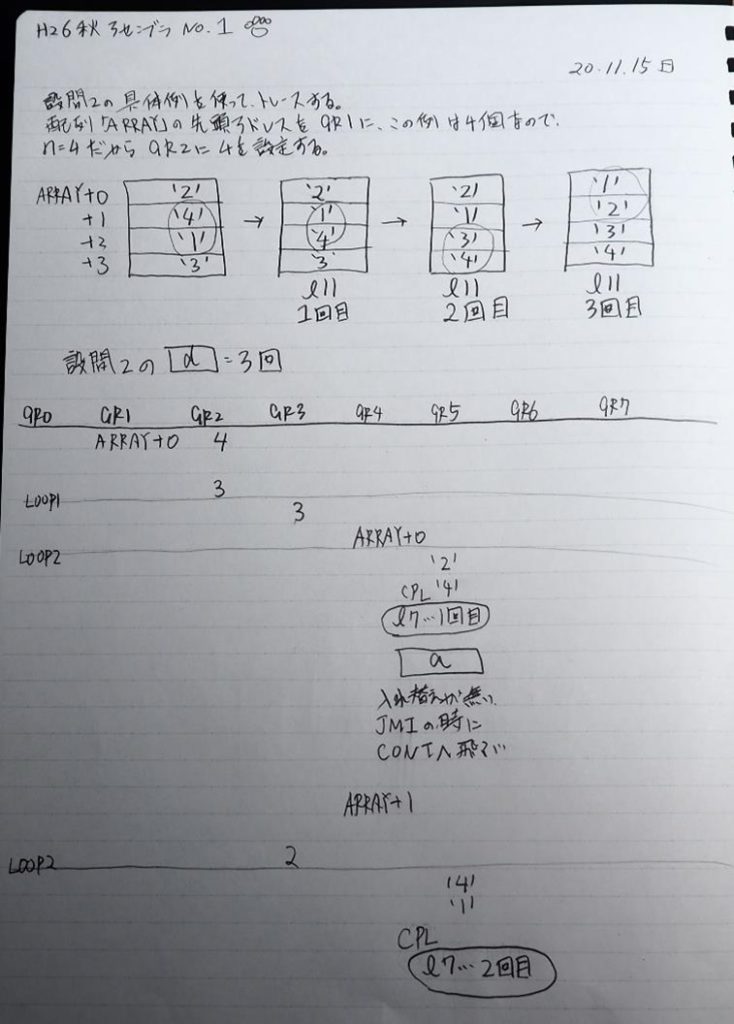 H26秋 アセンブラ NO.1
20.11.15 日
設問2の具体例を使って、トレースする。
配列「ARRAY」の先頭アドレスをGR1に、この例は4個なので、
n=4だからGR2に4を設定する。
ARRAY+0 '2' '2' '2' '1'
+1 '4' → '1' → '1' → '2'
+2 '1' '4' '3' '3'
+3 '3' '3' '4' '4'
l11 l11 l11
1回目 2回目 3回目
設問2の d =3回
GR0 GR1 GR2 GR3 GR4 GR5 GR6 GR7
ARRAY+0 4
3
LOOP1
3
ARRAY+0
LOOP2
'2'
CPL '4'
l7…1回目
a
入れ替えが無い
JMIの時に
CONTへ飛ぶ
ARRAY+1
2
LOOP2
'4'
'1'
CPL
l7…2回目